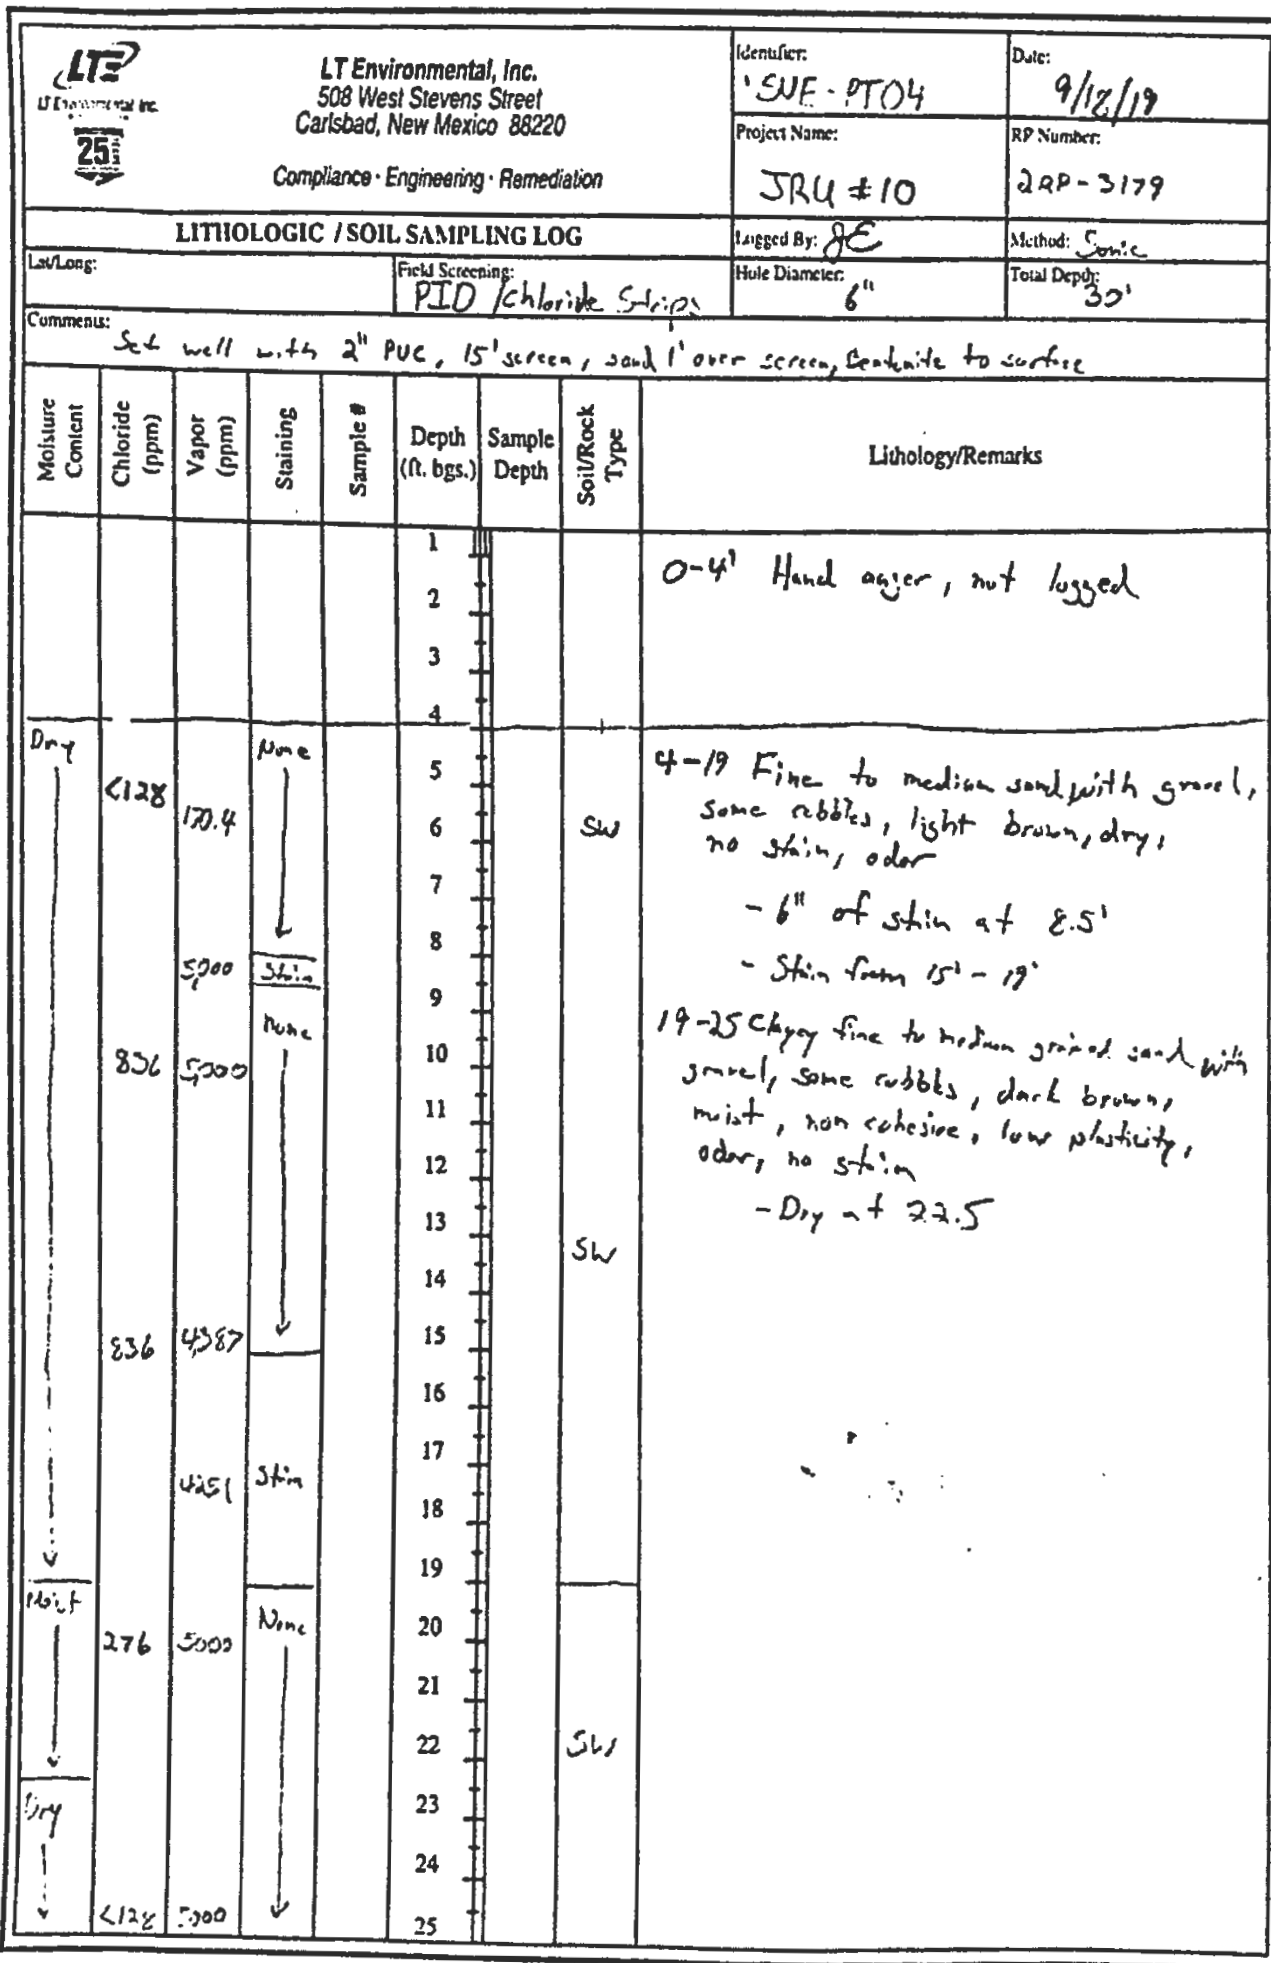 LTE
LT Environmental, Inc.
508 West Stevens Street
Carlsbad, New Mexico 88220
Compliance · Engineering · Remediation
LT Environmental Inc.
25
Identifier:
SVE-PT04
Date:
9/12/19
Project Name:
JRU #10
RP Number:
2RP-3179
LITHOLOGIC / SOIL SAMPLING LOG
Logged By: JE
Method: Sonic
Lat/Long:
Field Screening:
PID / Chloride Strips
Hole Diameter:
6"
Total Depth:
30'
Comments:
Set well with 2" PVC, 15' screen, sand 1' over screen, bentonite to surface
Moisture Content
Chloride (ppm)
Vapor (ppm)
Staining
Sample #
Depth (ft. bgs.)
Sample Depth
Soil/Rock Type
Lithology/Remarks
1
0-4' Hand auger, not logged
2
3
4
Dry None
4-19 Fine to medium sand with gravel,
5
<128
some cobbles, light brown, dry,
170.4 6 SW
no stain, odor
7
- 6" of stain at 8.5'
8
5,000 Stain
- Stain from 15' - 19'
9
None
19-25 Clayey fine to medium grained sand with
836 5,000 10
gravel, some cobbles, dark brown,
11
moist, non cohesive, low plasticity,
odor, no stain
12
- Dry at 22.5
13
SW
14
836 4,387 15
16
17
4251 Stain
18
19
Moist None
276 5000 20
21
22 SW
23
Dry
24
<128 5,000 25